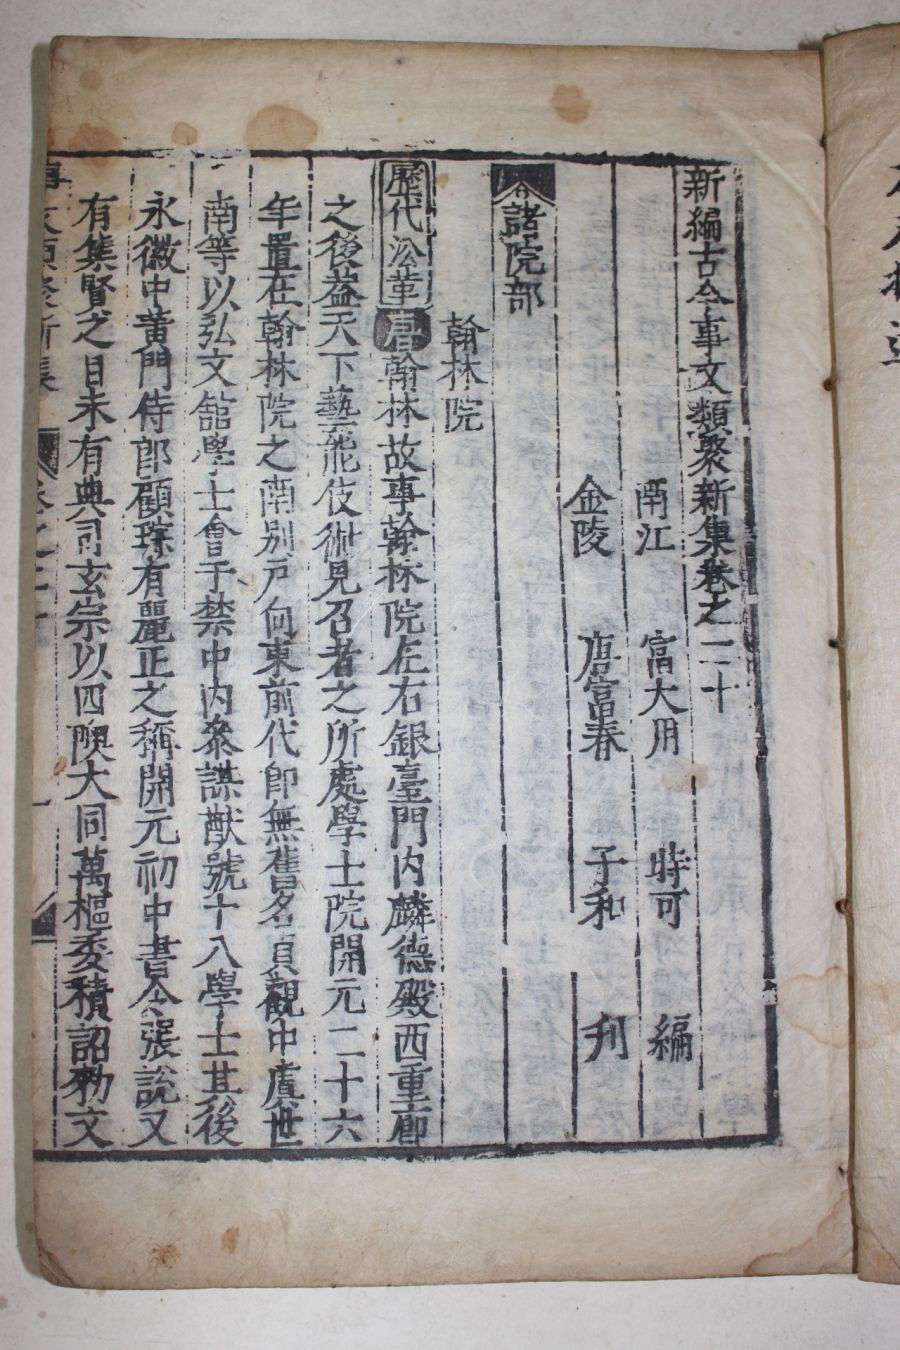 新編古今事文類聚新集卷之二十
南江 富大用 時可 編
金陵 唐富春 子和 刋
諸院部
翰林院
歷代沿革 唐 翰林故事翰林院在右銀臺門内麟德殿西重廊
之後葢天下藝能伎術見召者之所處學士院開元二十六
年置在翰林院之南别戶向東前代即無舊名貞觀中虞世
南等以弘文舘學士會于禁中内參謀猷號十八學士其後
永徽中黄門侍郎顧琮有麗正之稱開元初中書令張說又
有集賢之目未有典司玄宗以四隩大同萬樞委積詔勑文